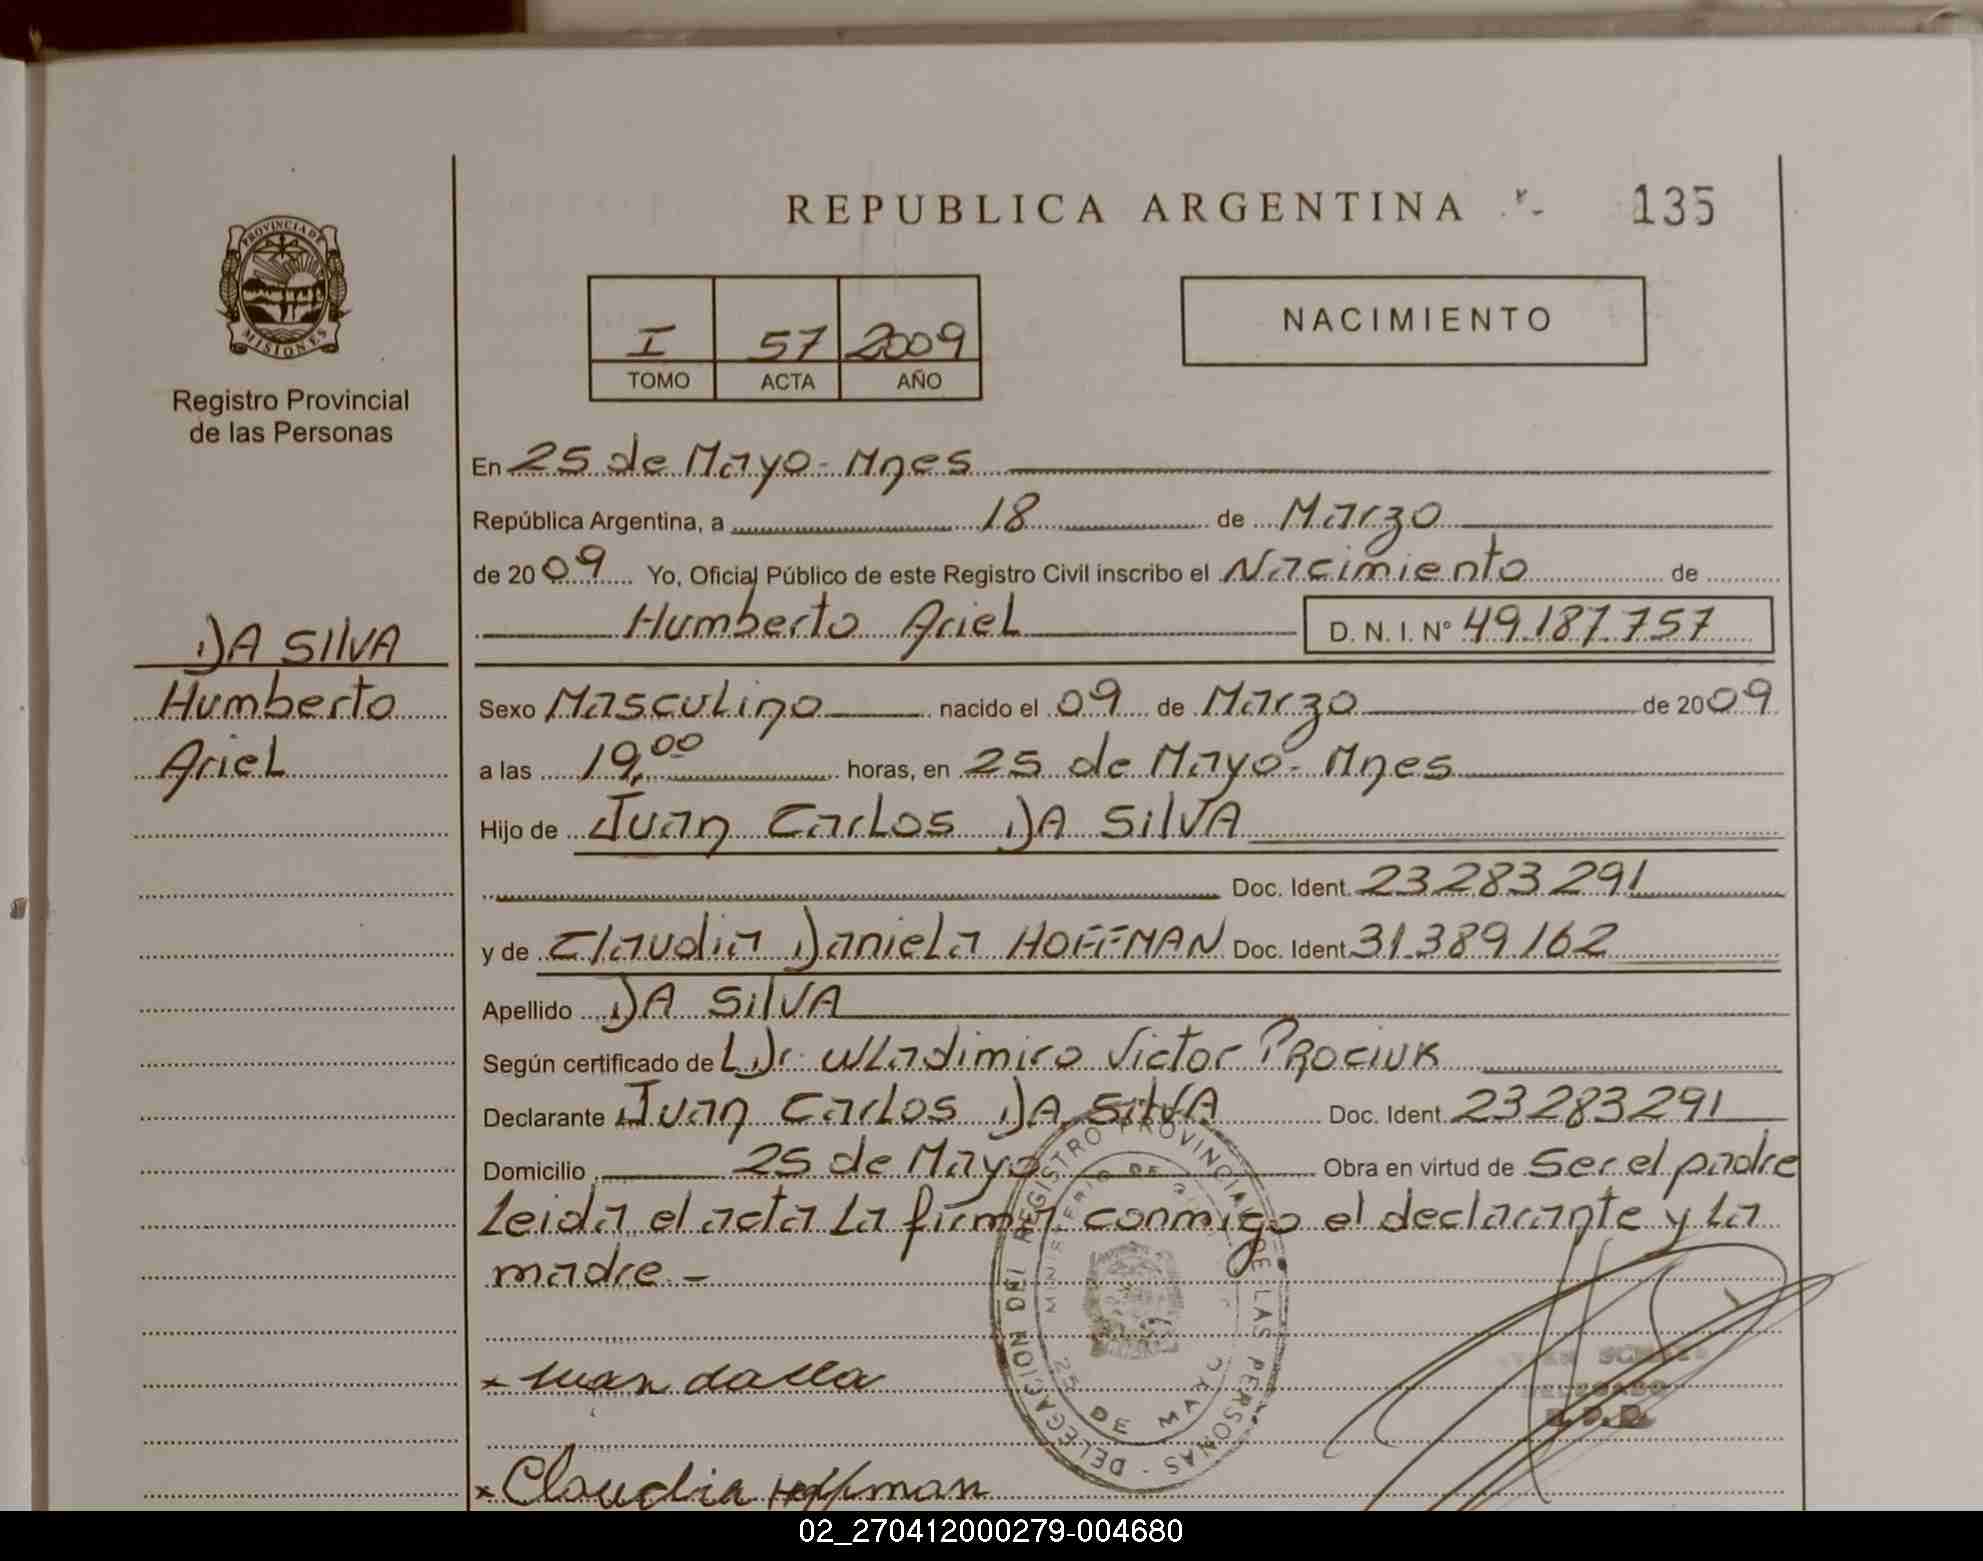 REPUBLICA ARGENTINA
135
PROVINCIA DE
MISIONES
Registro Provincial
de las Personas
I 57 2009
TOMO ACTA AÑO
NACIMIENTO
En 25 de Mayo - Mnes
República Argentina, a 18 de Marzo
de 2009 Yo, Oficial Público de este Registro Civil inscribo el Nacimiento de
Humberto Ariel D. N. I. N° 49.187.757
DA SILVA
Humberto
Ariel
Sexo Masculino nacido el 09 de Marzo de 2009
a las 19,00 horas, en 25 de Mayo - Mnes
Hijo de Juan Carlos DA SILVA
Doc. Ident. 23.283.291
y de Claudia Daniela HOFFMAN Doc. Ident. 31.389.162
Apellido DA SILVA
Según certificado de L Dr. Wladimiro Victor PROCIUK
Declarante Juan Carlos DA SILVA Doc. Ident. 23.283.291
Domicilio 25 de Mayo Obra en virtud de Ser el padre
Leida el acta la firma conmigo el declarante y la
madre -
DELEGACION DEL REGISTRO PROVINCIAL DE LAS PERSONAS
MINISTERIO DE
25 DE MAYO
DELEGADO
R.P.P.
x Claudia Hoffman
02_270412000279-004680